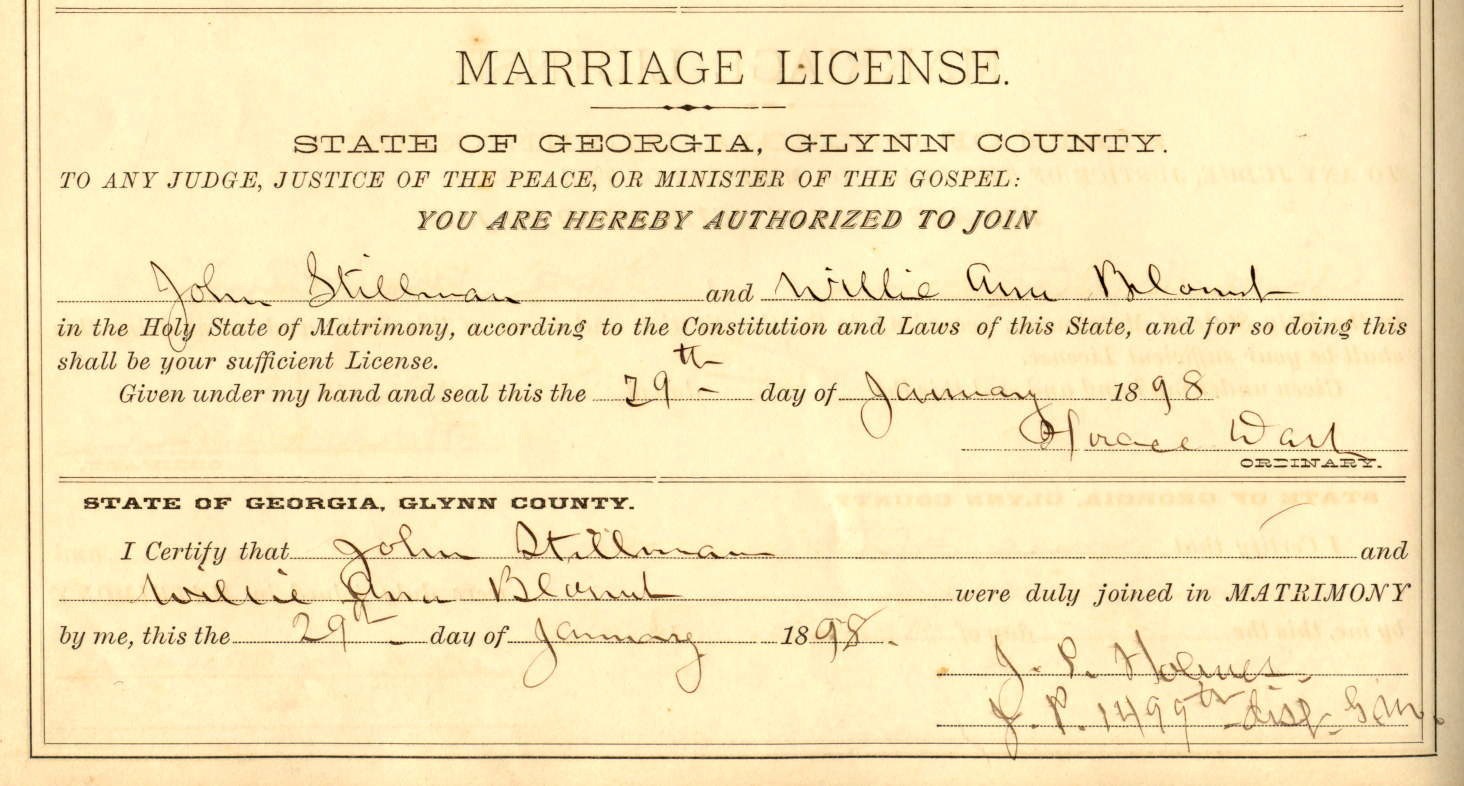 MARRIAGE LICENSE.
STATE OF GEORGIA, GLYNN COUNTY.
TO ANY JUDGE, JUSTICE OF THE PEACE, OR MINISTER OF THE GOSPEL:
YOU ARE HEREBY AUTHORIZED TO JOIN
John Stillman and Willie Ann Blount
in the Holy State of Matrimony, according to the Constitution and Laws of this State, and for so doing this
shall be your sufficient License.
Given under my hand and seal this the 29th day of January 1898.
Horace Dart
ORDINARY.
STATE OF GEORGIA, GLYNN COUNTY.
I Certify that John Stillman and
Willie Ann Blount were duly joined in MATRIMONY
by me, this the 29th day of January 1898.
J. P. Holmes.
J. P. 1499th dist G.M.